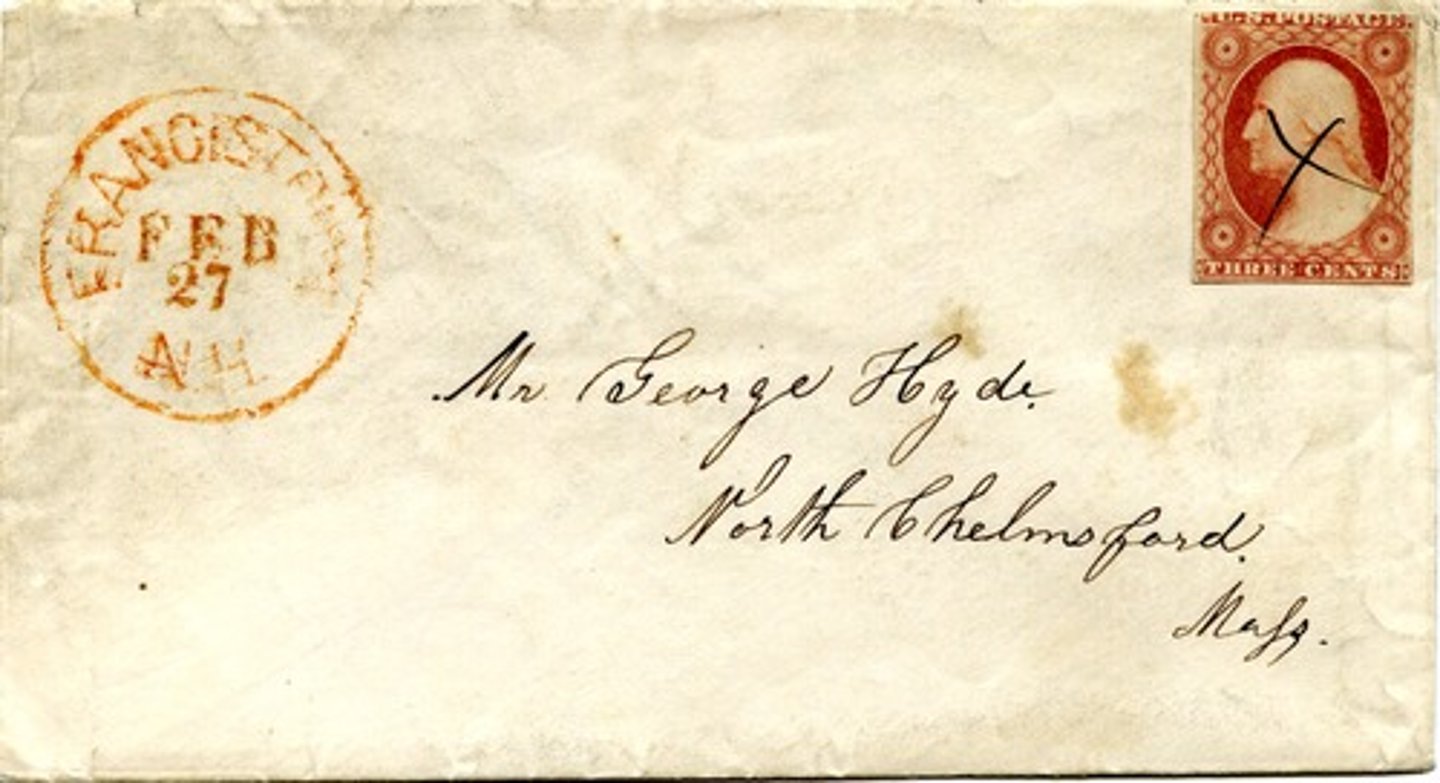 FRANCESTOWN
FEB
27
N.H
U.S. POSTAGE.
THREE CENTS
Mr. George Hyde.
North Chelmsford.
Mass.